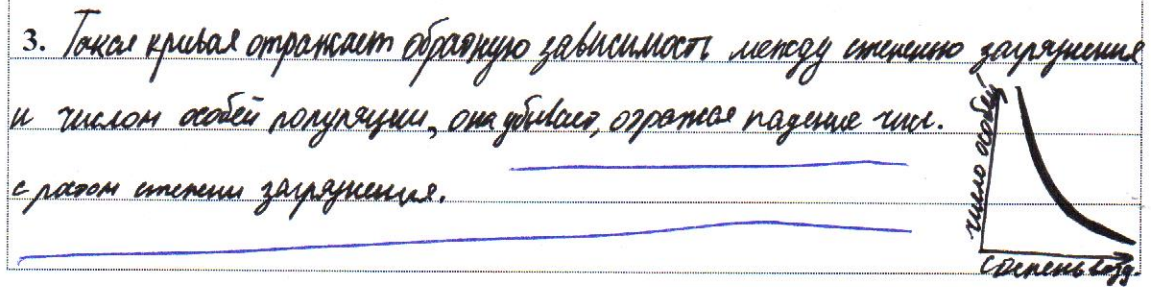 3. Такая кривая отражает обратную зависимость между степенью загрязнения
и числом особей популяции, она убывает, отражая падение чис.
с ростом степени загрязнения.
число особей
степень возд.